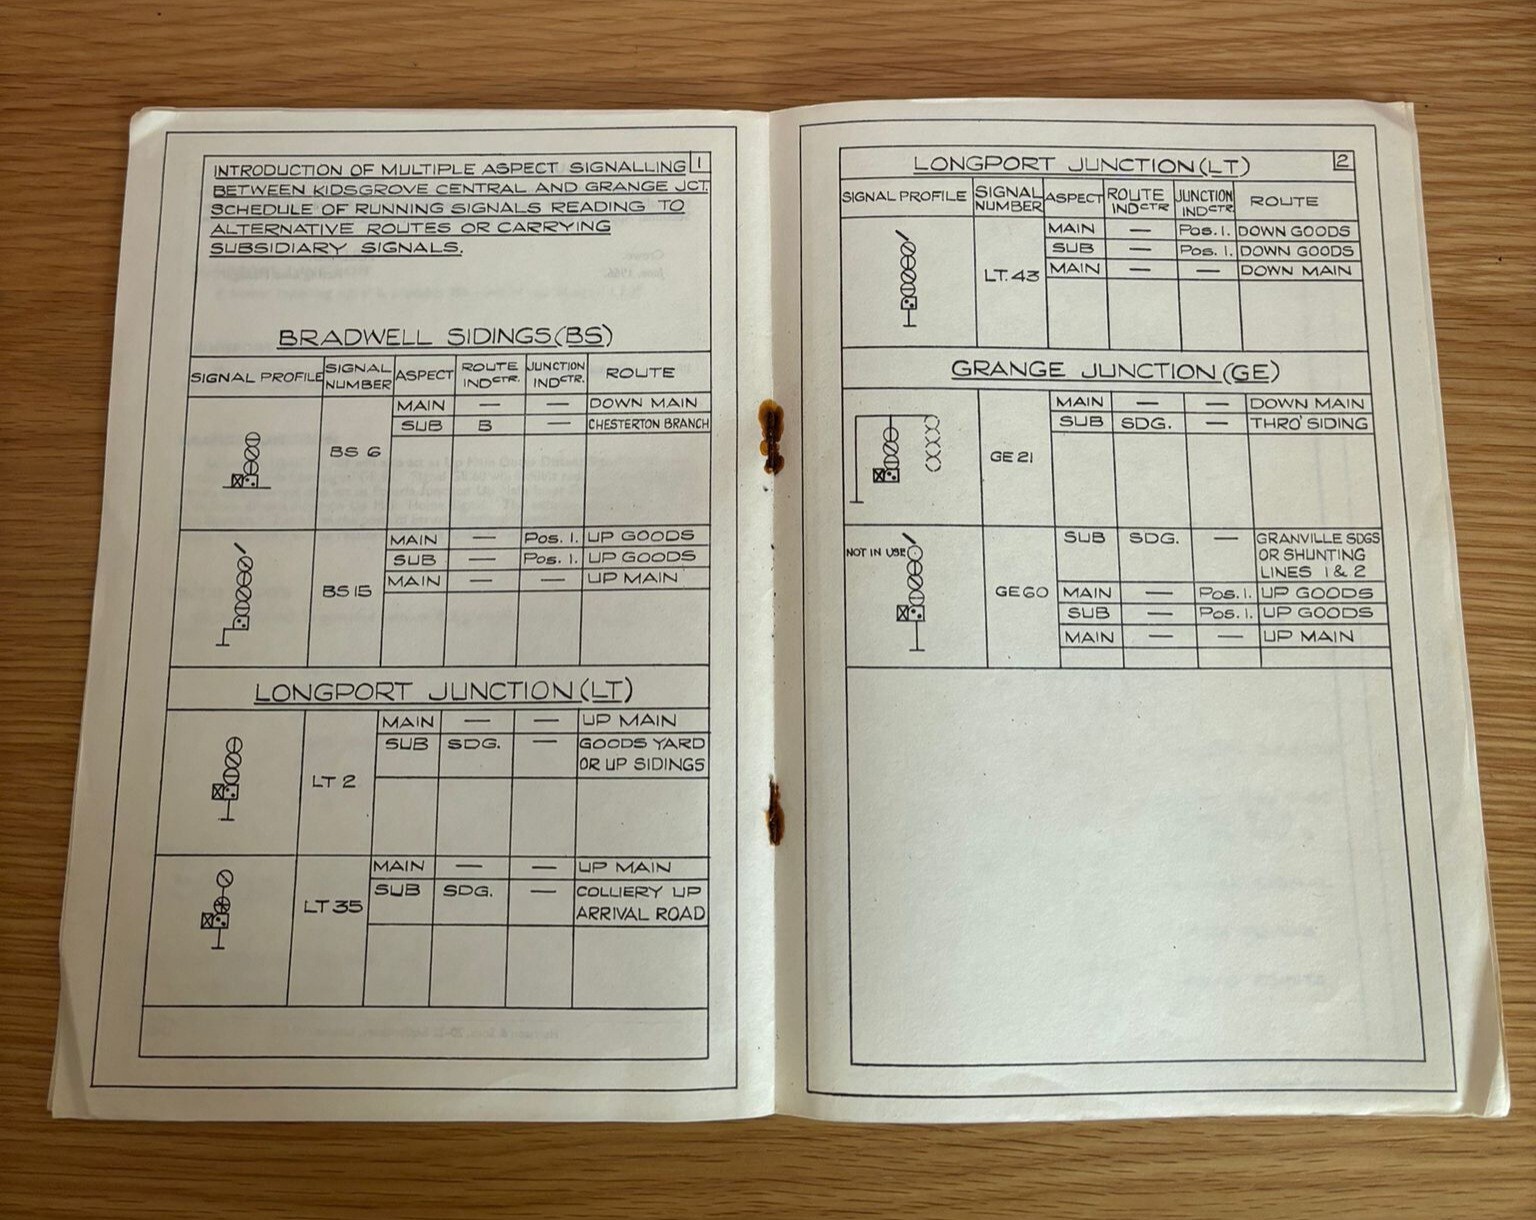 1
INTRODUCTION OF MULTIPLE ASPECT SIGNALLING
BETWEEN KIDSGROVE CENTRAL AND GRANGE JCT.
SCHEDULE OF RUNNING SIGNALS READING TO
ALTERNATIVE ROUTES OR CARRYING
SUBSIDIARY SIGNALS.
BRADWELL SIDINGS (BS)
SIGNAL PROFILE SIGNAL NUMBER ASPECT ROUTE INDCTR. JUNCTION INDCTR. ROUTE
BS 6
MAIN — — DOWN MAIN
SUB B — CHESTERTON BRANCH
BS 15
MAIN — Pos. 1. UP GOODS
SUB — Pos. 1. UP GOODS
MAIN — — UP MAIN
LONGPORT JUNCTION (LT)
LT 2
MAIN — — UP MAIN
SUB SDG. — GOODS YARD
OR UP SIDINGS
LT 35
MAIN — — UP MAIN
SUB SDG. — COLLIERY UP
ARRIVAL ROAD
LONGPORT JUNCTION (LT)
2
SIGNAL PROFILE SIGNAL NUMBER ASPECT ROUTE INDCTR JUNCTION INDCTR. ROUTE
LT. 43
MAIN — Pos. 1. DOWN GOODS
SUB — Pos. 1. DOWN GOODS
MAIN — — DOWN MAIN
GRANGE JUNCTION (GE)
GE 21
MAIN — — DOWN MAIN
SUB SDG. — THRO' SIDING
NOT IN USE
GE 60
SUB SDG. — GRANVILLE SDGS
OR SHUNTING
LINES 1 & 2
MAIN — Pos. 1. UP GOODS
SUB — Pos. 1. UP GOODS
MAIN — — UP MAIN